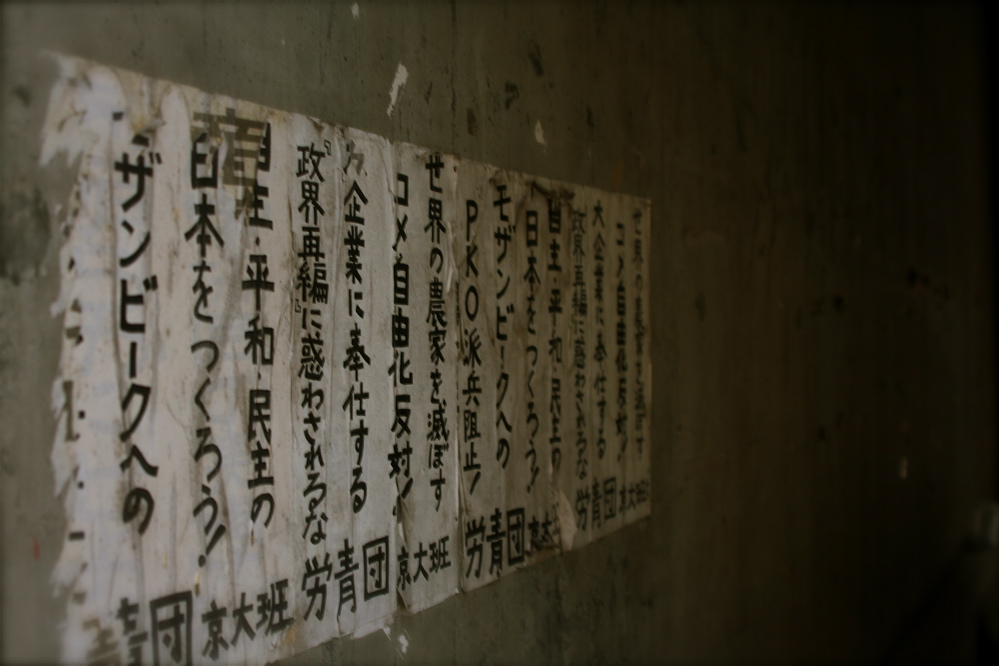 世界の農家を滅ぼす
コメ自由化反対！
大企業に奉仕する
政界再編に惑わされるな
労青団 京大班
自主・平和・民主の
日本をつくろう！
モザンビークへの
PKO派兵阻止！
労青団 京大
世界の農家を滅ぼす
コメ自由化反対！
企業に奉仕する
『政界再編』に惑わされるな
労青団 京大班
主・平和・民主の
日本をつくろう！
ザンビークへの
青団 京大班